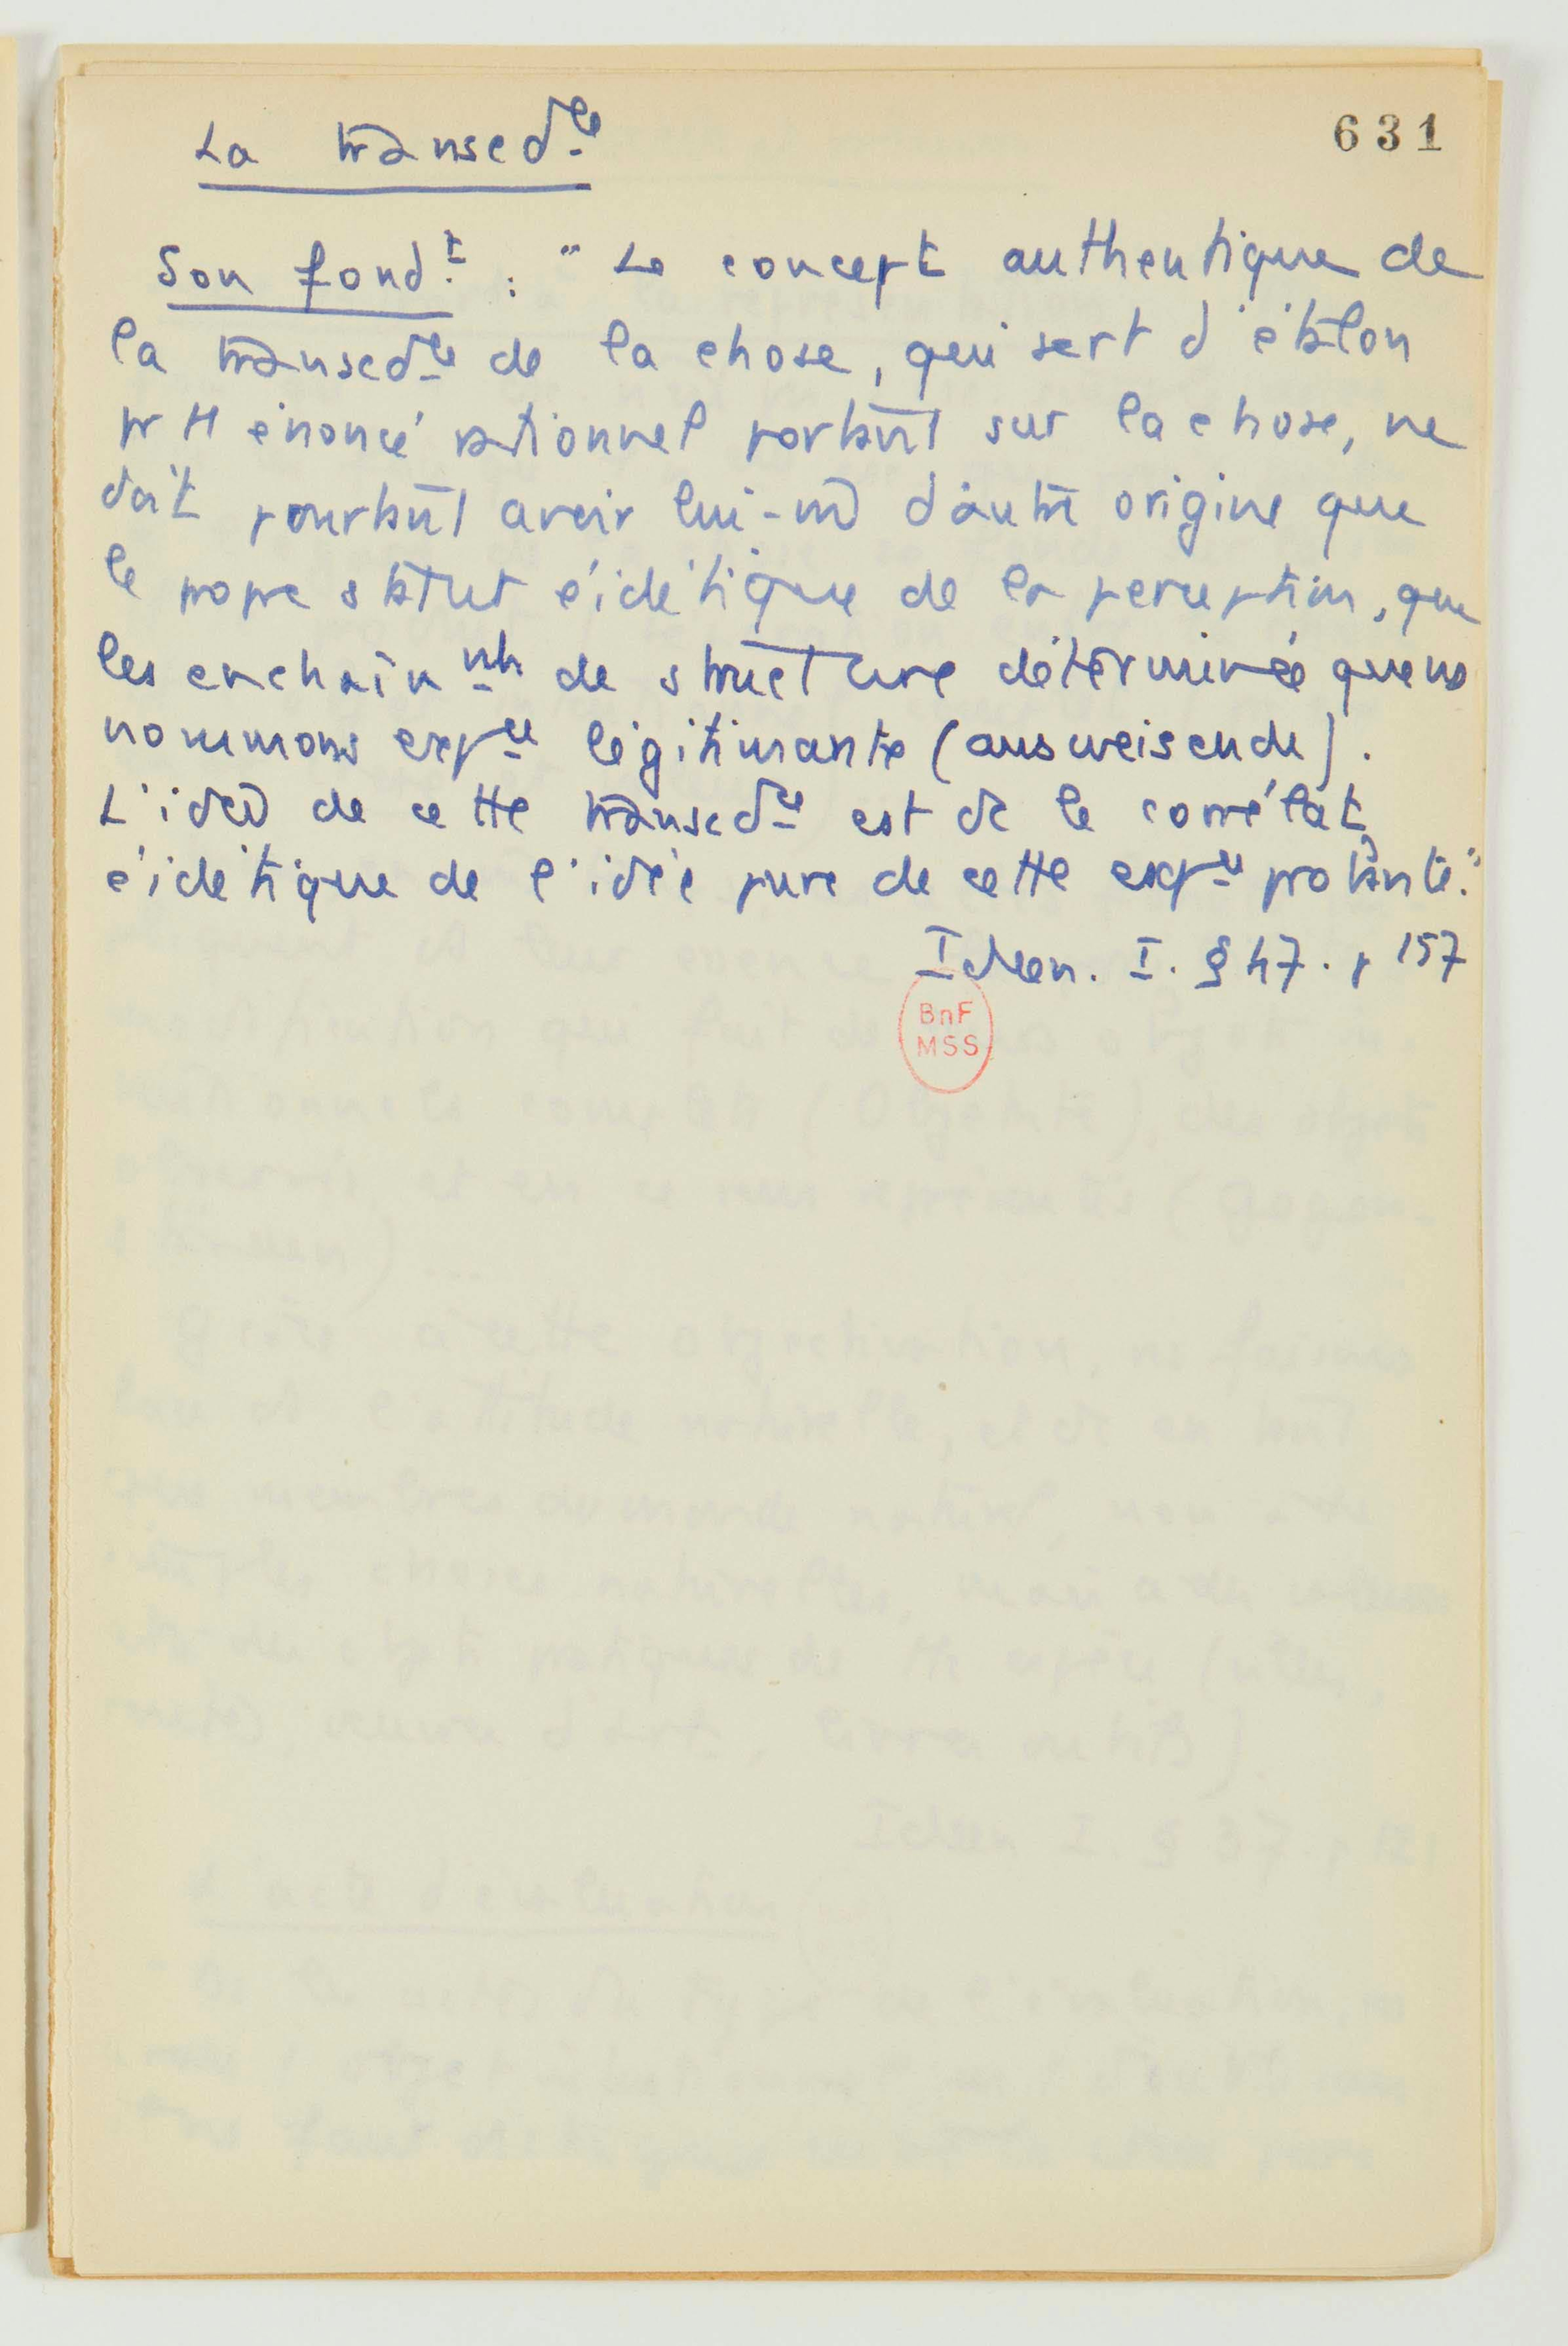 631
La transcdce
Son fondt : " Le concept authentique de
la transcdce de la chose, qui sert d'étalon
pr tt énoncé rationnel portant sur la chose, ne
doit pourtant avoir lui-m d'autre origine que
le propre statut éidétique de la perception, que
les enchaînmts de structure déterminée que ns
nommons expce légitimante (ausweisende).
L'idée de cette transcdce est dc le corrélat
éidétique de l'idée pure de cette expce probante."
Ideen. I. § 47. p 157
BnF
MSS